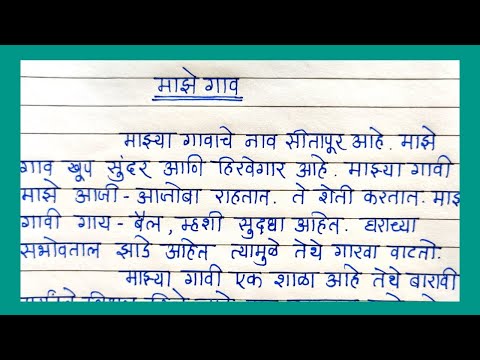 माझे गाव
माझ्या गावाचे नाव सीतापूर आहे. माझे
गाव खूप सुंदर आणि हिरवेगार आहे. माझ्या गावी
माझे आजी - आजोबा राहतात. ते शेती करतात. माझ
गावी गाय - बैल, म्हशी सुद्धा आहेत. घराच्या
सभोवताल झाडे आहेत त्यामुळे तेथे गारवा वाटतो.
माझ्या गावी एक शाळा आहे तेथे बारावी